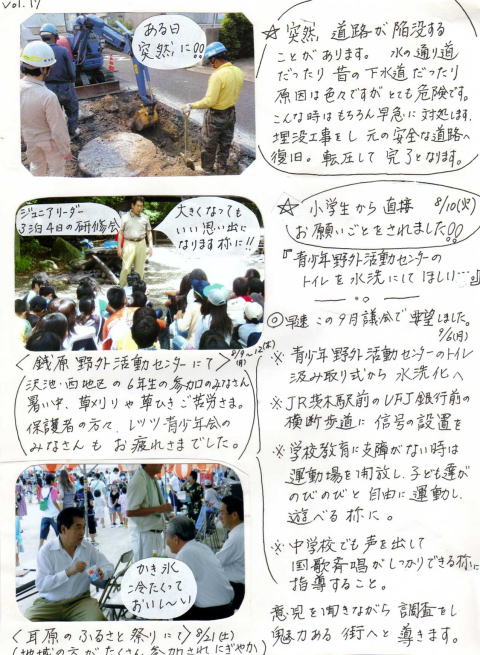 vol.17
ある日
突然に!!
☆ 突然 道路が陥没する
ことがあります。 水の通り道
だったり 昔の下水道だったり
原因は色々ですが とても危険です。
こんな時はもちろん早急に 対処します。
埋没工事をし 元の安全な道路へ
復旧。 転圧して 完了となります。
ジュニアリーダー
3泊4日の研修会
大きくなっても
いい思い出に
なります様に!!
〈銭原 野外活動センターにて〉 8/9〜12(木)
(月)
沢池・西地区の 6年生の参加のみなさん
暑い中、草刈りや 草ひき ご苦労さま。
保護者の方々、レッツ青少年会の
みなさんも お疲れさまでした。
☆ 小学生から 直接 8/10(火)
お願いごとをされました!!
『青少年 野外活動センターの
トイレを 水洗にして ほしい…。』
◎早速 この9月議会で 要望しました。
9/6(月)
※ 青少年野外活動センターのトイレ
汲み取り式から 水洗化へ
※ JR茨木駅前の UFJ銀行前の
横断歩道に 信号の設置を
※ 学校教育に支障がない時は
運動場を開放し、子ども達が
のびのびと 自由に運動し、
遊べる様に。
※ 中学校でも 声を出して
国歌斉唱が しっかりできる様に
指導すること。
意見を聞きながら 調査をし
魅力ある 街へと 導きます。
かき氷
冷たくって
おいし〜い
〈耳原のふるさと祭りにて〉 8/21(土)
(地域の方がたくさん参加され にぎやか)